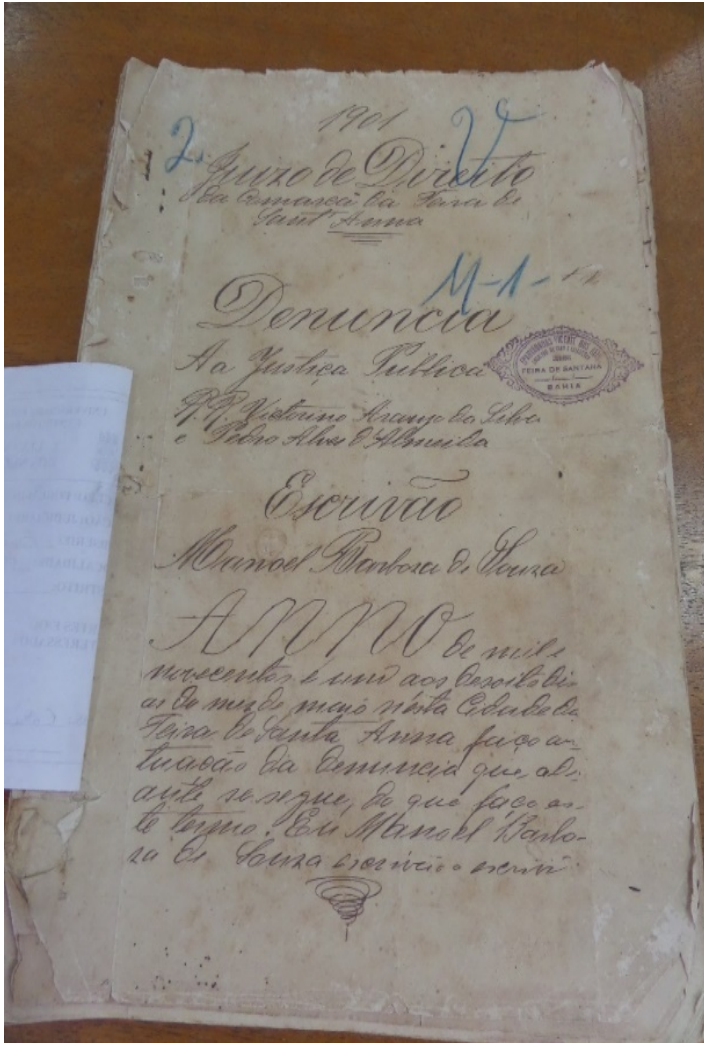 1901
2.
V
Juizo de Direito
da Comarca da Feira de
Sant'Anna
M-1-
Denuncia
A a Justiça Publica
FEIRA DE SANTANA
BAHIA
R.R. Victorino Araujo da Silva
e Pedro Alves d'Almeida
Escrivão
Manoel Barboza de Souza
ANNO de mil e
novecentos e um aos desoito di-
as do mez de maio nesta Cidade da
Feira de Santa Anna faço au-
tuação da denuncia que adi-
ante se segue, do que faço es-
te termo. Eu Manoel Barbo-
za de Souza escrivão o escrivi